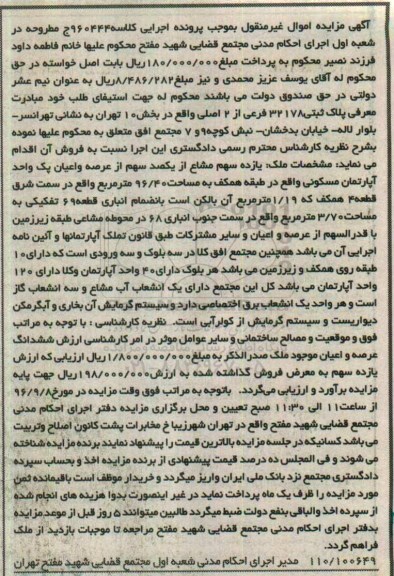 آگهی مزایده اموال غیرمنقول بموجب پرونده اجرایی کلاسه۹۶۰۴۴۴ج مطروحه در
شعبه اول اجرای احکام مدنی مجتمع قضایی شهید مفتح محکوم علیها خانم فاطمه داود
فرزند نصیر محکوم به پرداخت مبلغ۱۸۰/۰۰۰/۰۰۰ریال بابت اصل خواسته در حق
محکوم له آقای یوسف عزیز محمدی و نیز مبلغ۸/۴۸۶/۲۸۲ریال به عنوان نیم عشر
دولتی در حق صندوق دولت می باشند محکوم له جهت استیفای طلب خود مبادرت
معرفی پلاک ثبتی۳۳۱۷۸ فرعی از ۲ اصلی واقع در بخش۱۰ تهران به نشانی تهرانسر-
بلوار لاله- خیابان بدخشان- نبش کوچه۹ و ۷ مجتمع افق متعلق به محکوم علیها نموده
بشرح نظریه کارشناس محترم رسمی دادگستری این اجرا نسبت به فروش آن اقدام
می نماید: مشخصات ملک: یازده سهم مشاع از یکصد سهم از عرصه واعیان یک واحد
آپارتمان مسکونی واقع در طبقه همکف به مساحت۹۶/۴۰ مترمربع واقع در سمت شرق
قطعه۴ همکف که ۱/۱۹مترمربع آن بالکن است بانضمام انباری قطعه۶۹ تفکیکی به
مساحت۳/۷۰مترمربع واقع در سمت جنوب انباری ۶۸ در محوطه مشاعی طبقه زیرزمین
با قدرالسهم از عرصه و اعیان و سایر مشترکات طبق قانون تملک آپارتمانها و آئین نامه
اجرایی آن می باشد همچنین مجتمع افق کلا در سه بلوک و سه ورودی است که دارای۱۰
طبقه روی همکف و زیرزمین می باشد هر بلوک دارای۴۰ واحد آپارتمان وکلا دارای ۱۲۰
واحد آپارتمان می باشد کل این مجتمع دارای یک انشعاب آب مشاع و سه انشعاب گاز
است و هر واحد یک انشعاب برق اختصاصی دارد و سیستم گرمایش آن بخاری و آبگرمکن
دیواریست و سیستم گرمایش از کولرآبی است. نظریه کارشناسی : با توجه به مراتب
فوق و موقعیت و مصالح ساختمانی و سایر عوامل موثر در امر کارشناسی ارزش ششدانگ
عرصه و اعیان موجود ملک صدرالذکر به مبلغ۱/۸۰۰/۰۰۰/۰۰۰ریال ارزیابی که ارزش
یازده سهم به معرض فروش گذاشته شده به ارزش۱۹۸/۰۰۰/۰۰۰ریال جهت پایه
مزایده برآورد و ارزیابی می‌گردد. باتوجه به مراتب فوق وقت مزایده در مورخ۹۶/۹/۲۸
از ساعت۱۱ الی ۱۱:۳۰ صبح تعیین و محل برگزاری مزایده دفتر اجرای احکام مدنی
مجتمع قضایی شهید مفتح واقع در تهران شهرزیبا خ مخابرات پشت کانون اصلاح وتربیت
می باشد کسانیکه در جلسه مزایده بالاترین قیمت را پیشنهاد نمایند برنده مزایده شناخته
می شوند و فی المجلس ده درصد قیمت پیشنهادی از برنده مزایده اخذ و بحساب سپرده
دادگستری مجتمع نزد بانک ملی ایران واریز میگردد و خریدار موظف است باقیمانده ثمن
مورد مزایده را ظرف یک ماه پرداخت نماید در غیر اینصورت بدوا هزینه های انجام شده
از سپرده اخذ والباقی بنفع دولت ضبط میگردد طالبین میتوانند ۵ روز قبل از موعد مزایده
بدفتر اجرای احکام مدنی مجتمع قضایی شهید مفتح مراجعه تا موجبات بازدید از ملک
فراهم گردد.
۱۱۰/۱۰۰۶۴۹ مدیر اجرای احکام مدنی شعبه اول مجتمع قضایی شهید مفتح تهران